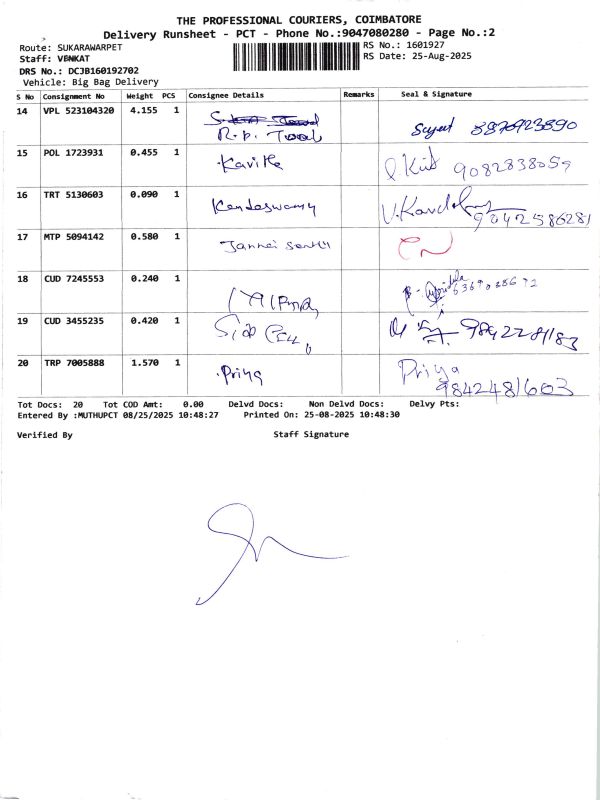 THE PROFESSIONAL COURIERS, COIMBATORE
Delivery Runsheet - PCT - Phone No.:9047080280 - Page No.:2
Route: SUKARAWARPET RS No.: 1601927
Staff: VENKAT RS Date: 25-Aug-2025
DRS No.: DCJB160192702
Vehicle: Big Bag Delivery
S No Consignment No Weight PCS Consignee Details Remarks Seal & Signature
14 VPL 523104320 4.155 1 R.P. Tool
15 POL 1723931 0.455 1 Kavitha 9082838059
16 TRT 5130603 0.090 1 Kandaswamy 9042586281
17 MTP 5094142 0.580 1
18 CUD 7245553 0.240 1
19 CUD 3455235 0.420 1
20 TRP 7005888 1.570 1 Priya Priya
9842481603
Tot Docs: 20 Tot COD Amt: 0.00 Delvd Docs: Non Delvd Docs: Delvy Pts:
Entered By :MUTHUPCT 08/25/2025 10:48:27 Printed On: 25-08-2025 10:48:30
Verified By Staff Signature